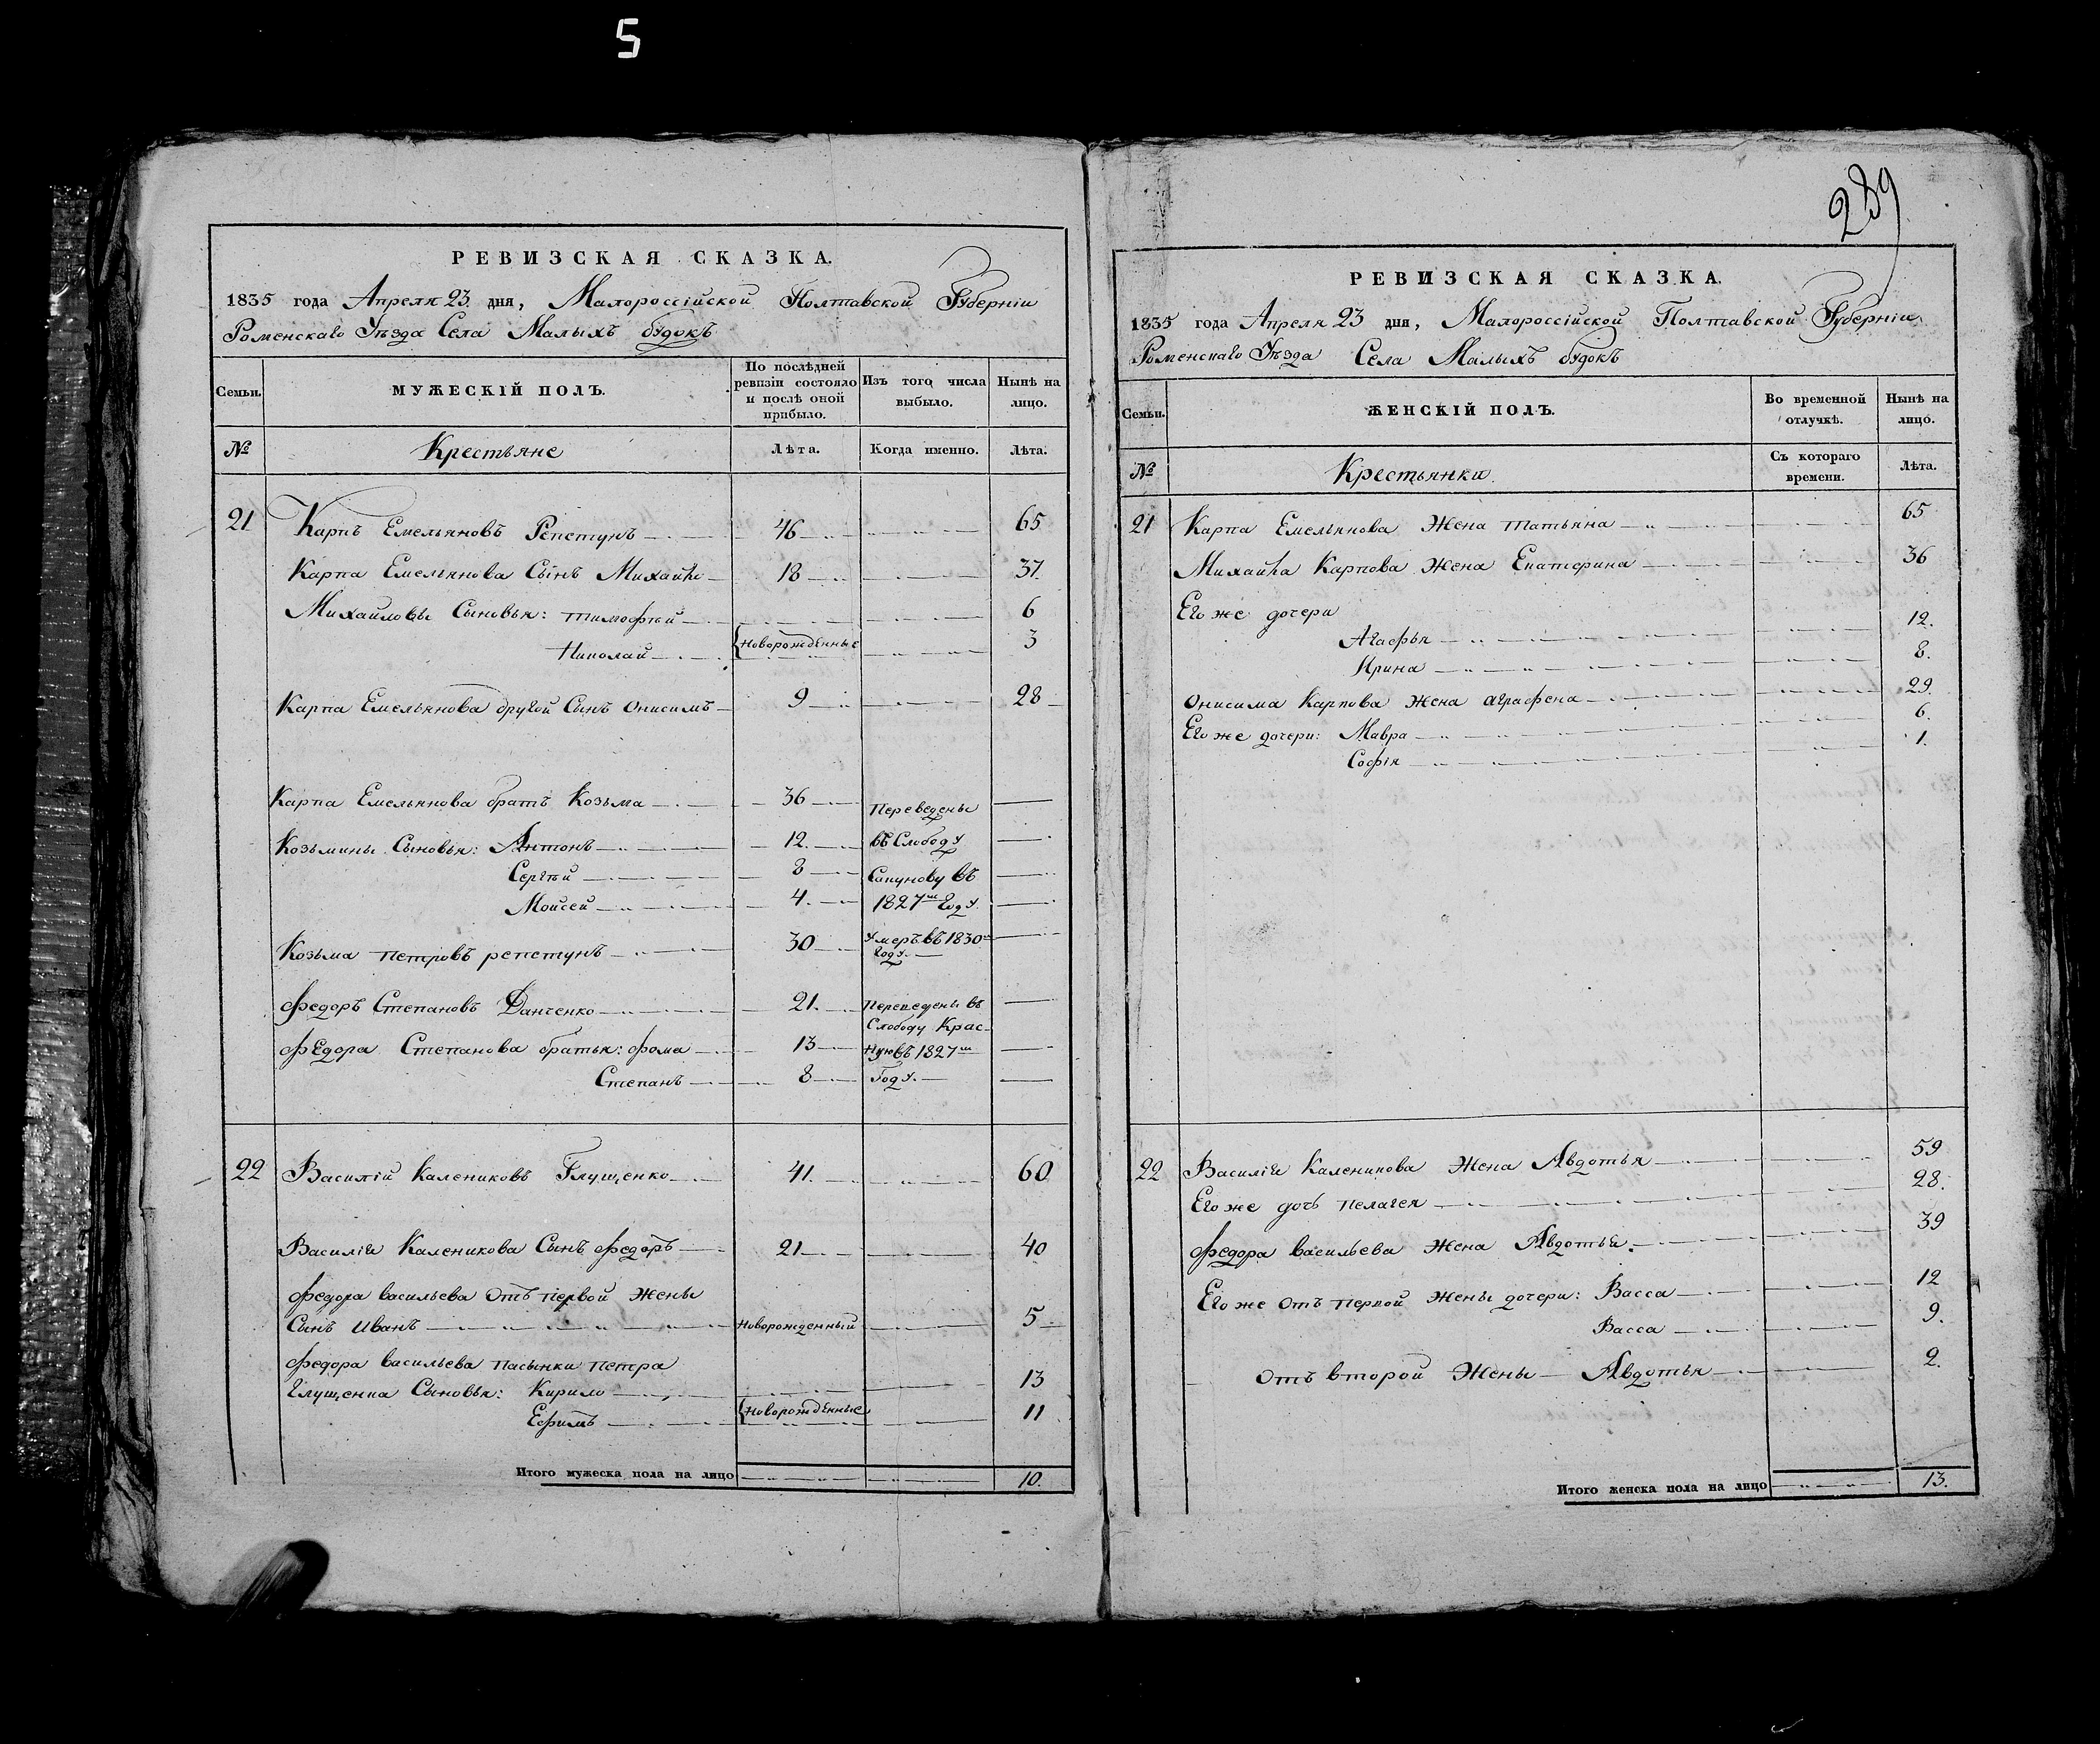 5
РЕВИЗСКАЯ СКАЗКА.
1835 года Апреля 23 дня, Малороссійской Полтавской Губерніи
Роменскаго Уѣзда Села Малыхъ будокъ
Семьи.
МУЖЕСКІЙ ПОЛЪ.
По послѣдней ревизіи состояло и послѣ оной прибыло.
Изъ того числа выбыло.
Нынѣ на лицо.
№ Крестьяне Лѣта. Когда именно. Лѣта.
21 Карпъ Емельяновъ Репетунъ 46 65
Карпа Емельянова Сынъ Михайло 18 37.
Михайловы Сыновья: Тимофей 6
Николай {Новорожденные 3
Карпа Емельянова другой Сынъ Онисимъ 9 28
Карпа Емельянова братъ Козьма 36 Переведены
Козьмины Сыновья: Антонъ 12. въ Слободу
Сергѣй 8 Сапунову въ
Моисей 4. 1827м Году.
Козьма Петровъ репетунъ 30 Умеръ въ 1830м Году.
Федоръ Степановъ Данченко 21. Переведены въ
Слободу Крас-
Федора Степанова братья: Фома 13 ную въ 1827м
Степанъ 8 Году.
22 Василій Калениковъ Глущенко 41. 60
Василія Каленикова Сынъ Федоръ 21 40
Федора васильева Отъ первой Жены
Сынъ Иванъ Новорожденный 5
Федора васильева пасынки Петра
Глущенка Сыновья: Кирило 13
Ефимъ {Новорожденные 11
Итого мужеска пола на лицо 10.
239
РЕВИЗСКАЯ СКАЗКА.
1835 года Апреля 23 дня, Малороссійской Полтавской Губерніи
Роменскаго Уѣзда Села Малыхъ будокъ
Семьи.
ЖЕНСКІЙ ПОЛЪ.
Во временной отлучкѣ.
Нынѣ на лицо.
№ Крестьянки. Съ котораго времени. Лѣта.
21 Карпа Емельянова Жена Татьяна 65
Михайла Карпова Жена Екатерина 36
Его же дочери
Агафья 12.
Ирина 8.
Онисима Карпова Жена аграфена 29.
Его же дочери: Мавра 6.
Софія 1.
22 Василія Каленикова Жена Авдотья 59
Его же дочь Пелагея 28.
Федора васильева Жена Авдотья. 39
Его же Отъ первой Жены дочери: Васса 12
Васса 9.
Отъ второй Жены Авдотья 2.
Итого женска пола на лицо 13.